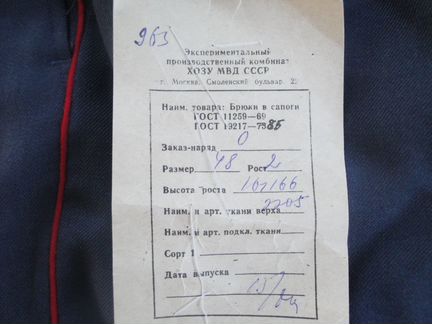 963
Экспериментальный
производственный комбинат
ХОЗУ МВД СССР
г. Москва, Смоленский бульвар, 22
Наим. товара: Брюки в сапоги
ГОСТ 11259—69
ГОСТ 19217—73 85
Заказ-наряд 0
Размер 48 Рост 2
Высота роста 161 166
Наим. и арт. ткани верха 2205
Наим. и арт. подкл. ткани
Сорт 1
Дата выпуска